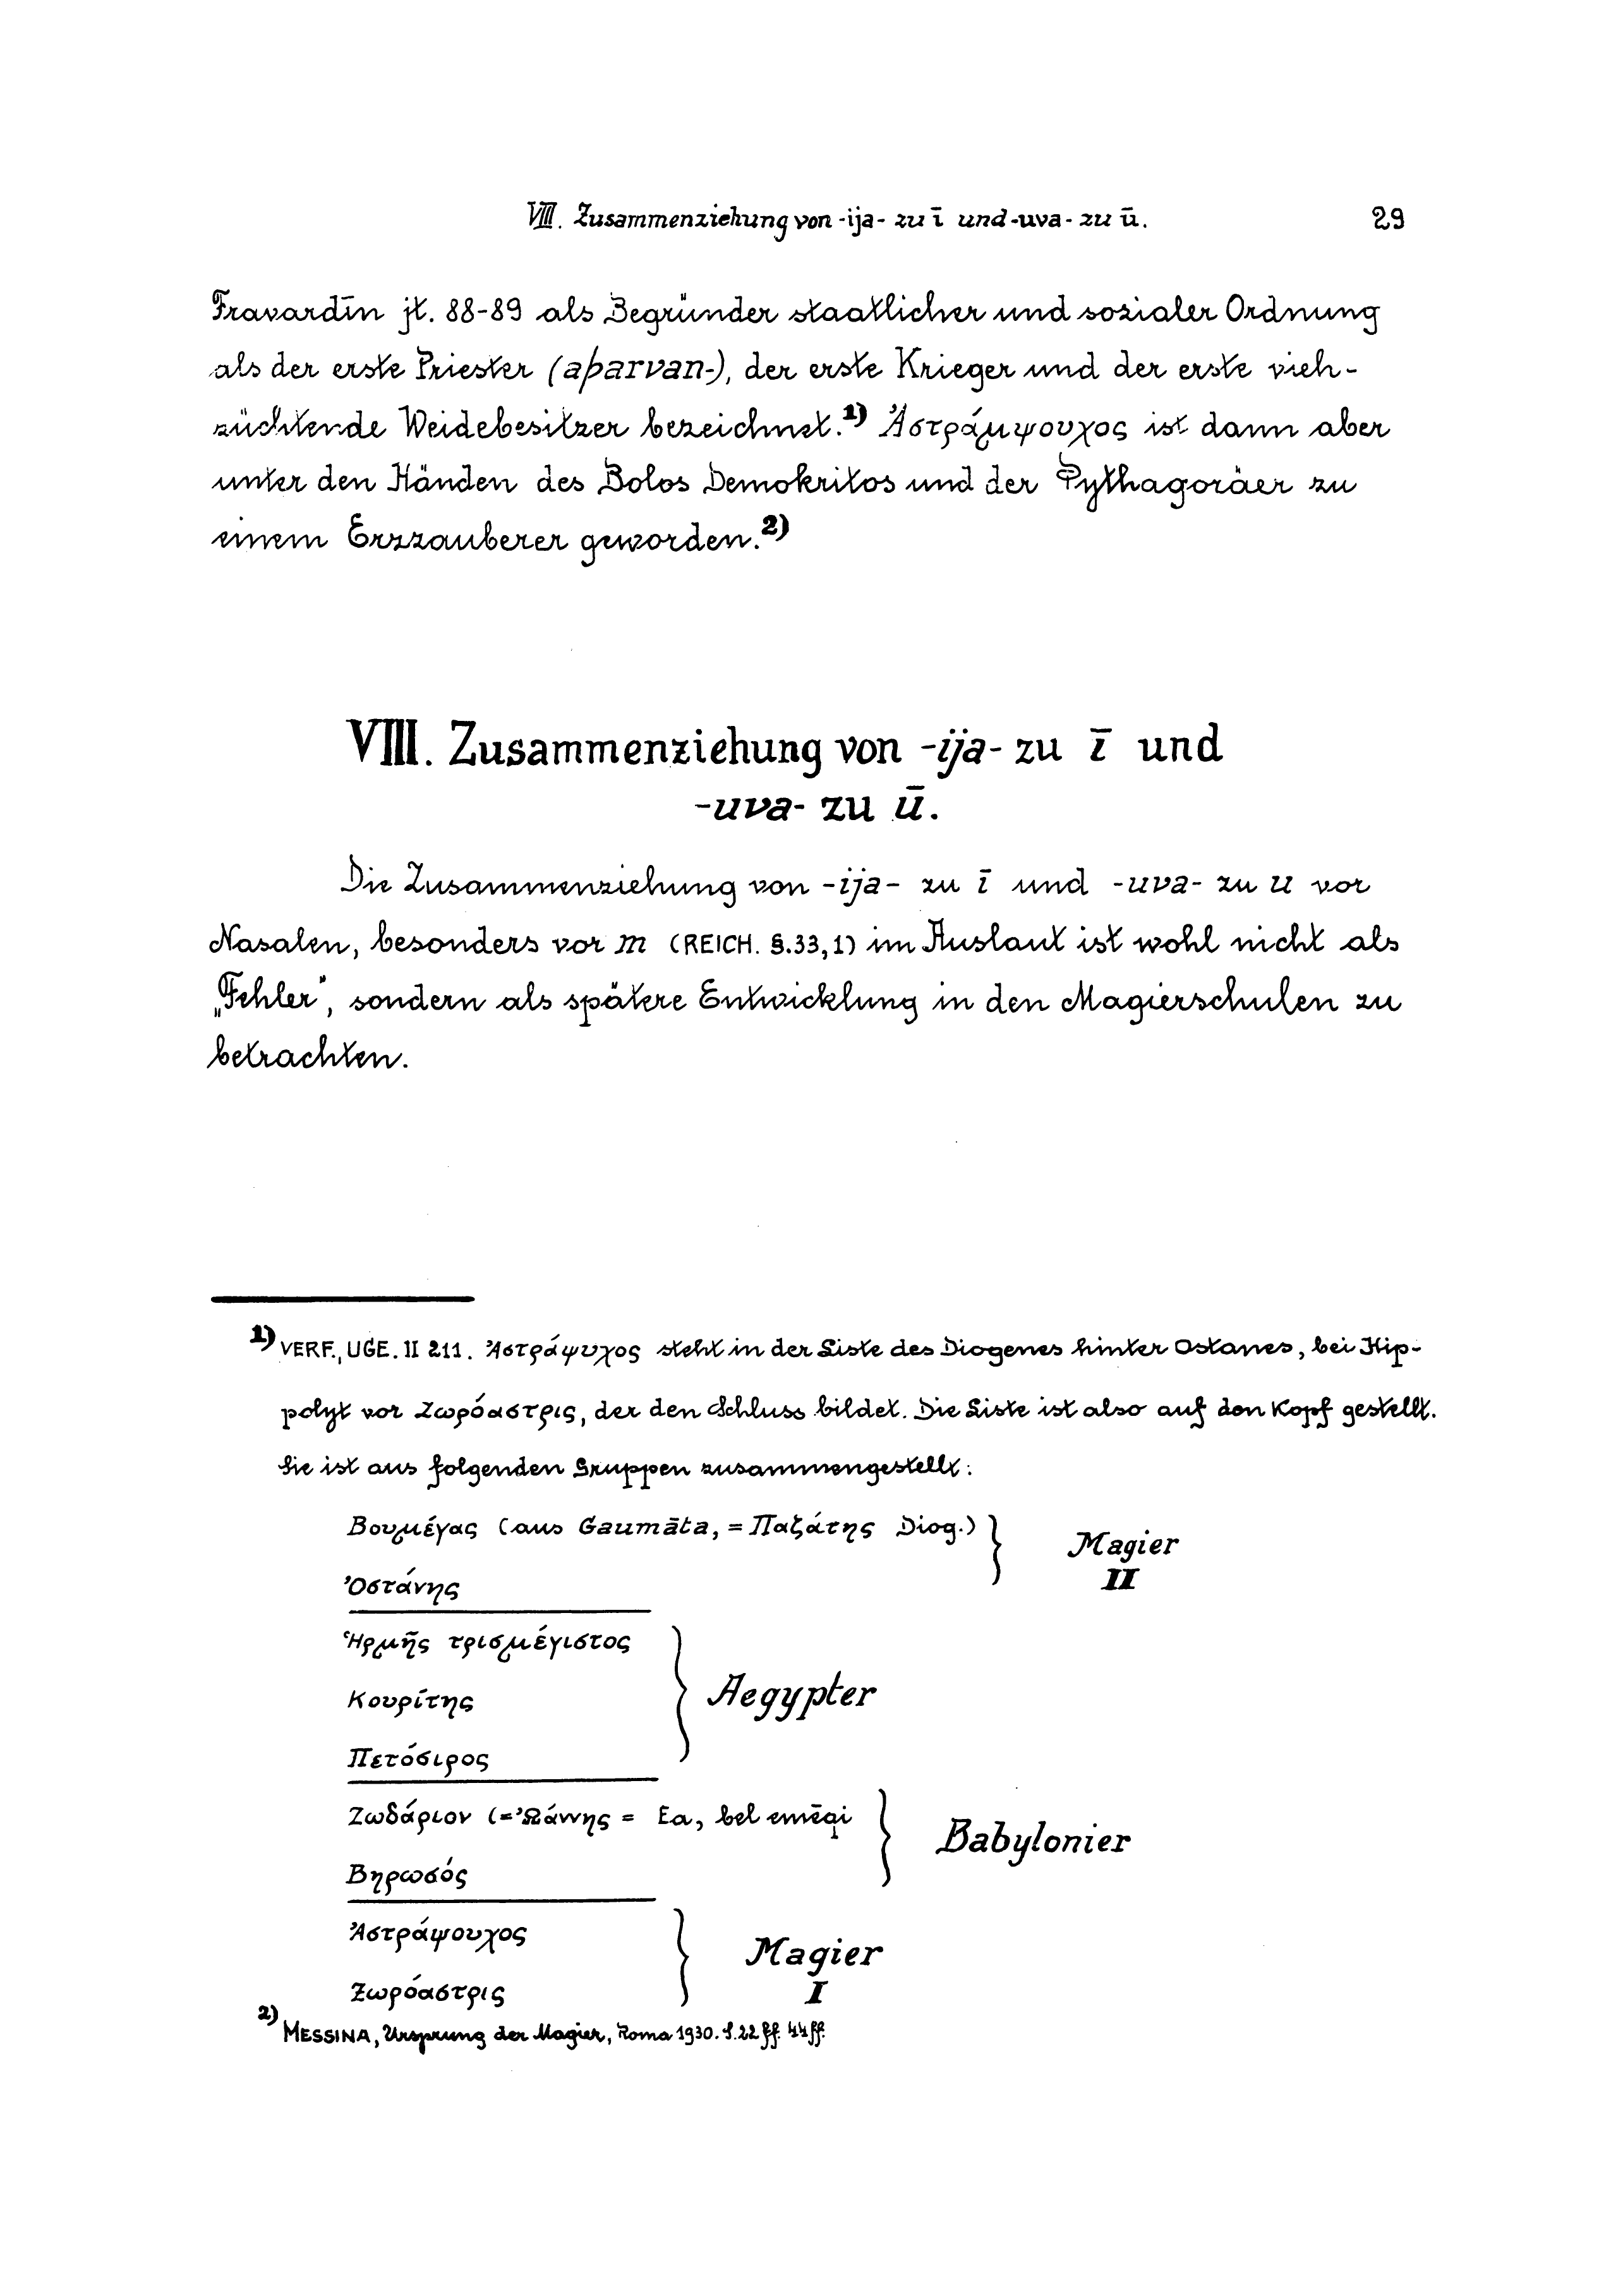 VIII. Zusammenziehung von -ija- zu ī und -uva- zu ū. 29
Fravardīn jt. 88-89 als Begründer staatlicher und sozialer Ordnung
als der erste Priester (aþarvan-), der erste Krieger und der erste vieh-
züchtende Weidebesitzer bezeichnet.¹⁾ Ἀστράμψουχος ist dann aber
unter den Händen des Bolos Demokritos und der Pythagoräer zu
einem Erzzauberer geworden.²⁾
VIII. Zusammenziehung von -ija- zu ī und
-uva- zu ū.
Die Zusammenziehung von -ija- zu ī und -uva- zu u vor
Nasalen, besonders vor m (REICH. §.33,1) im Auslaut ist wohl nicht als
„Fehler", sondern als spätere Entwicklung in den Magierschulen zu
betrachten.
¹⁾ VERF., UGE. II 211. Ἀστράψυχος steht in der Liste des Diogenes hinter Ostanes, bei Hip-
polyt vor Ζωρόαστρις, der den Schluss bildet. Die Liste ist also auf den Kopf gestellt.
Sie ist aus folgenden Gruppen zusammengestellt:
Βουμέγας (aus Gaumāta, = Παζάτης Diog.) } Magier
Ὀστάνης II
Ἡρμῆς τρισμέγιστος
Κουρίτης } Aegypter
Πετόσιρος
Ζωδάριον (=Ὠάννης = Ea, bel emēqi } Babylonier
Βηρωσός
Ἀστράψουχος } Magier
Ζωρόαστρις I
²⁾ MESSINA, Ursprung der Magier, Roma 1930. S.22 ff. 44 ff.